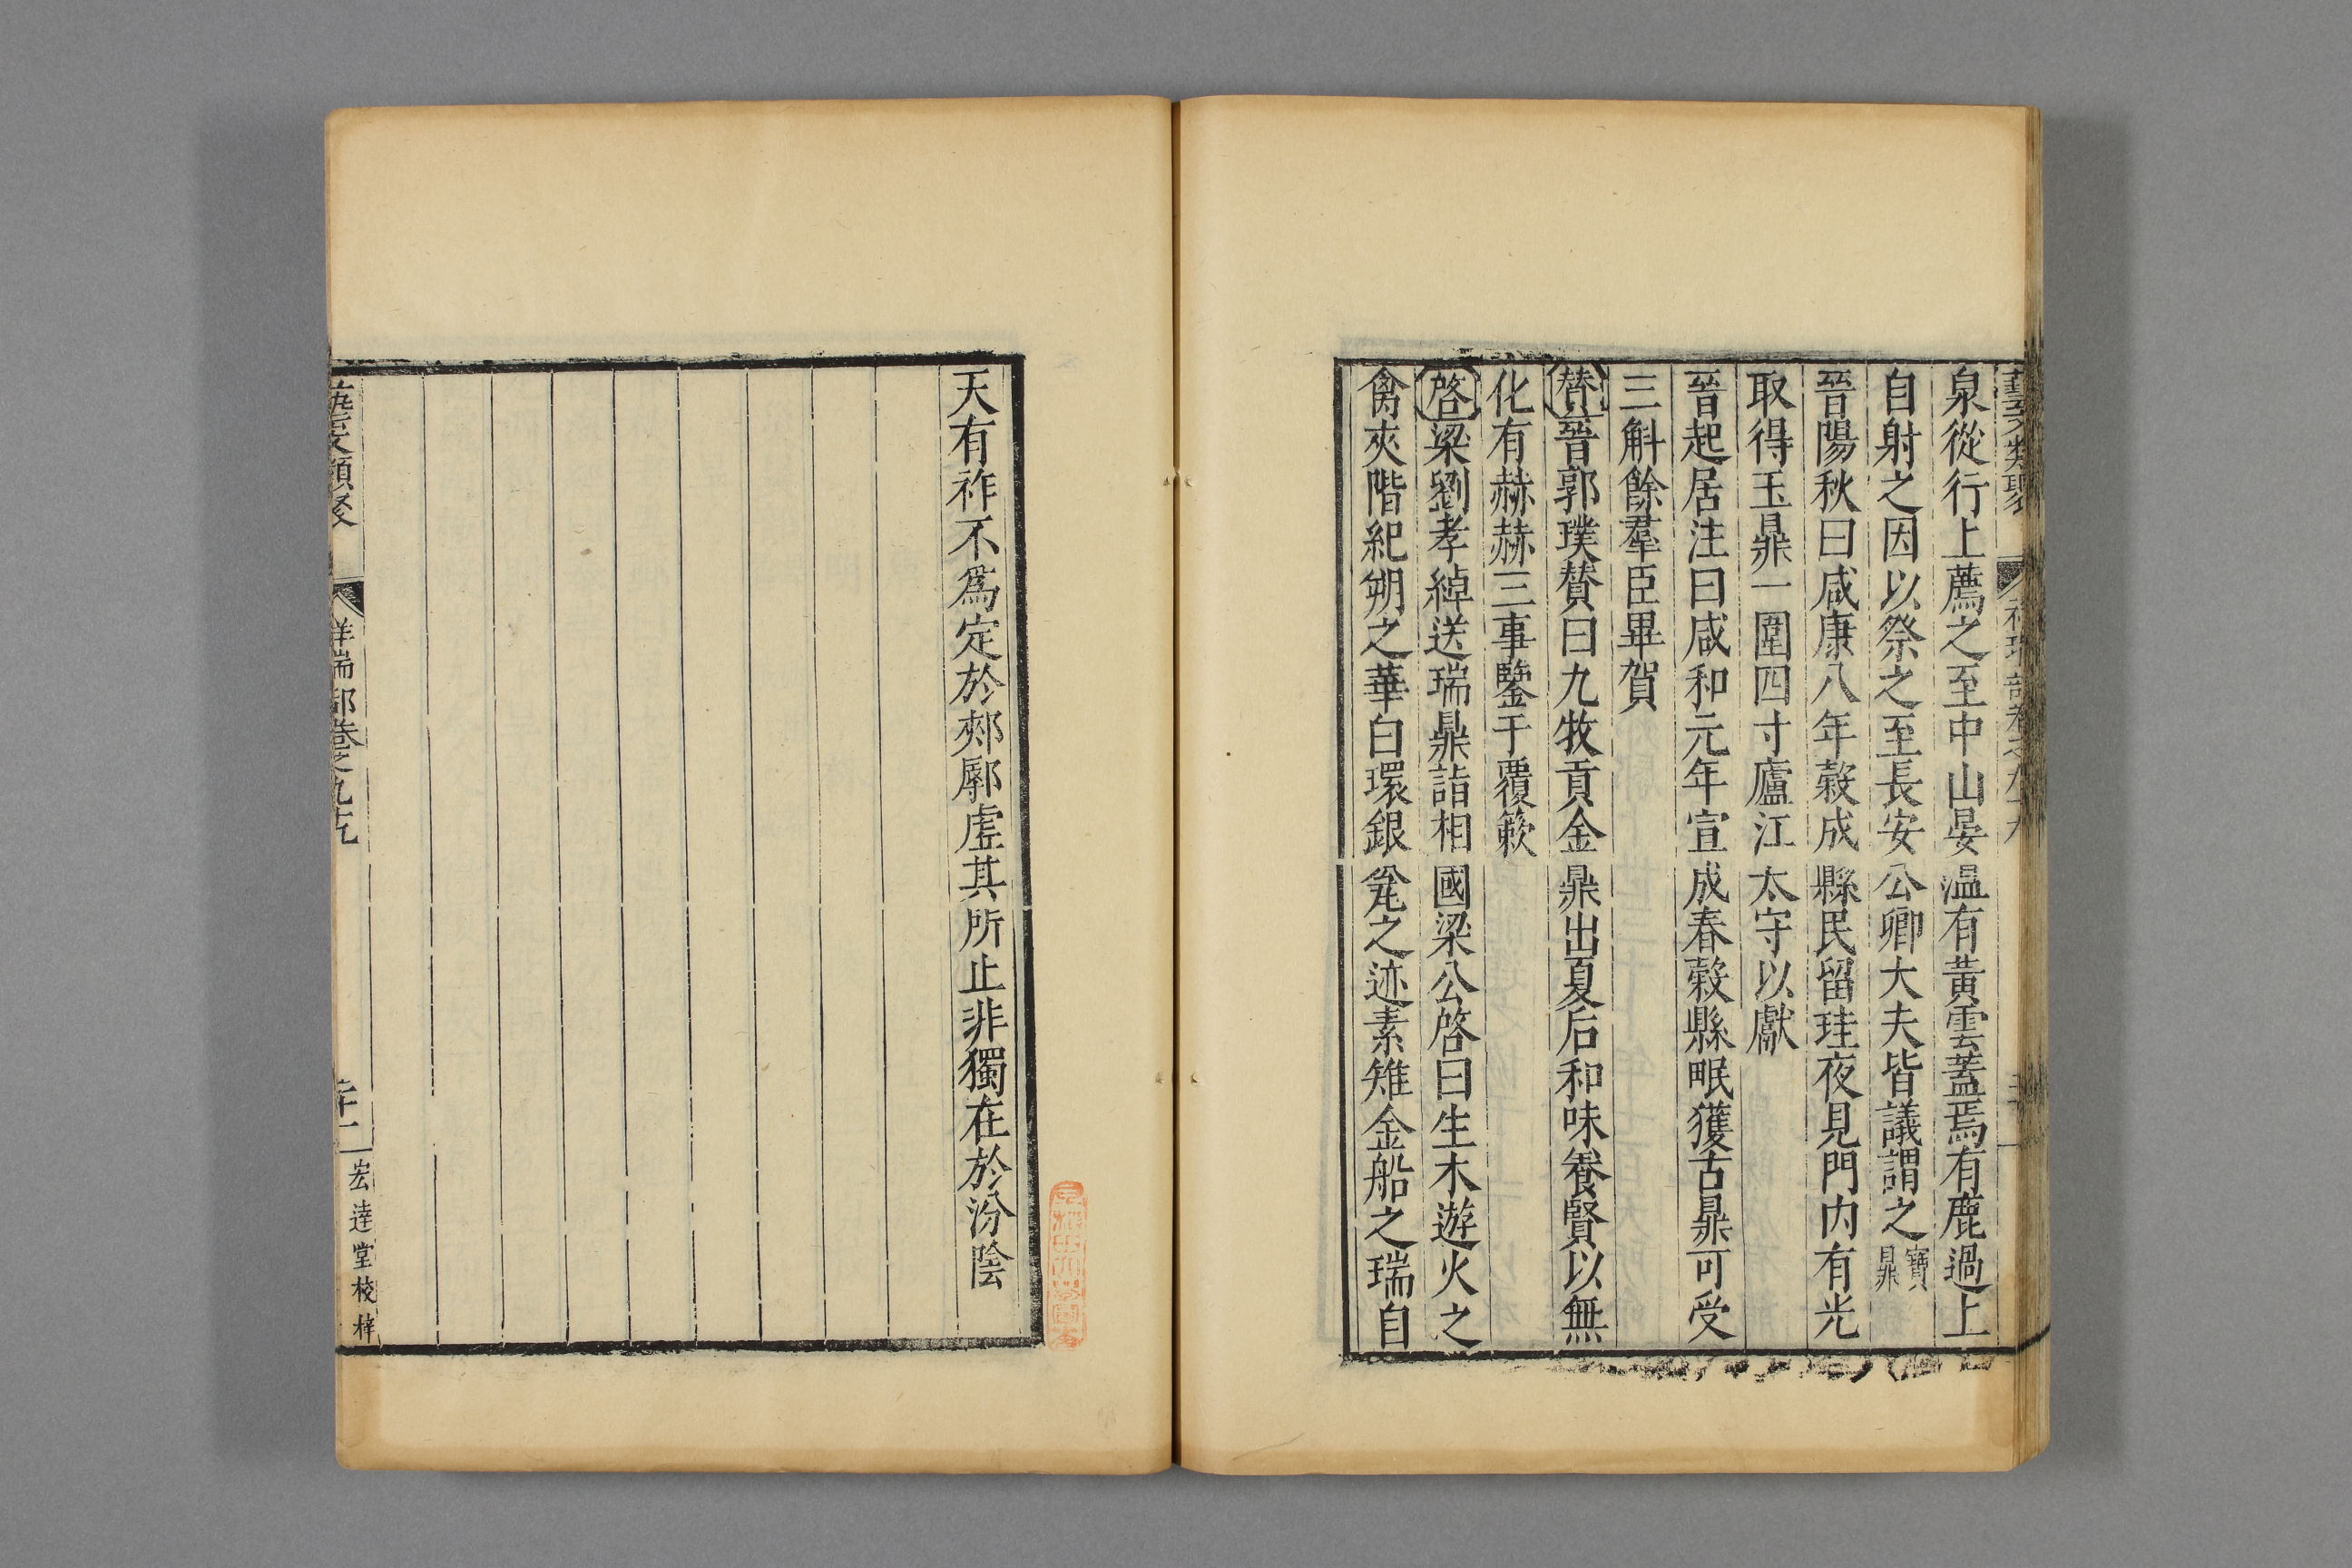 藝文類聚 祥瑞部卷之九十九
泉從行上薦之至中山晏溫有黃雲蓋焉有鹿過上
自射之因以祭之至長安公卿大夫皆議謂之寶鼎
晉陽秋曰咸康八年穀成縣民留珪夜見門内有光
取得玉鼎一圍四寸廬江太守以獻
晉起居注曰咸和元年宣成春穀縣眠獲古鼎可受
三斛餘羣臣畢賀
贊晉郭璞贊曰九牧貢金鼎出夏后和味養賢以無
化有赫赫三事鑒于覆餗
啓梁劉孝綽送瑞鼎詣相國梁公啓曰生木遊火之
禽夾階紀朔之華白環銀甕之迹素雉金船之瑞自
天有祚不為定於郟廓虛其所止非獨在於汾陰
藝文類聚 祥瑞部卷之九十九 二十一 宏達堂校梓